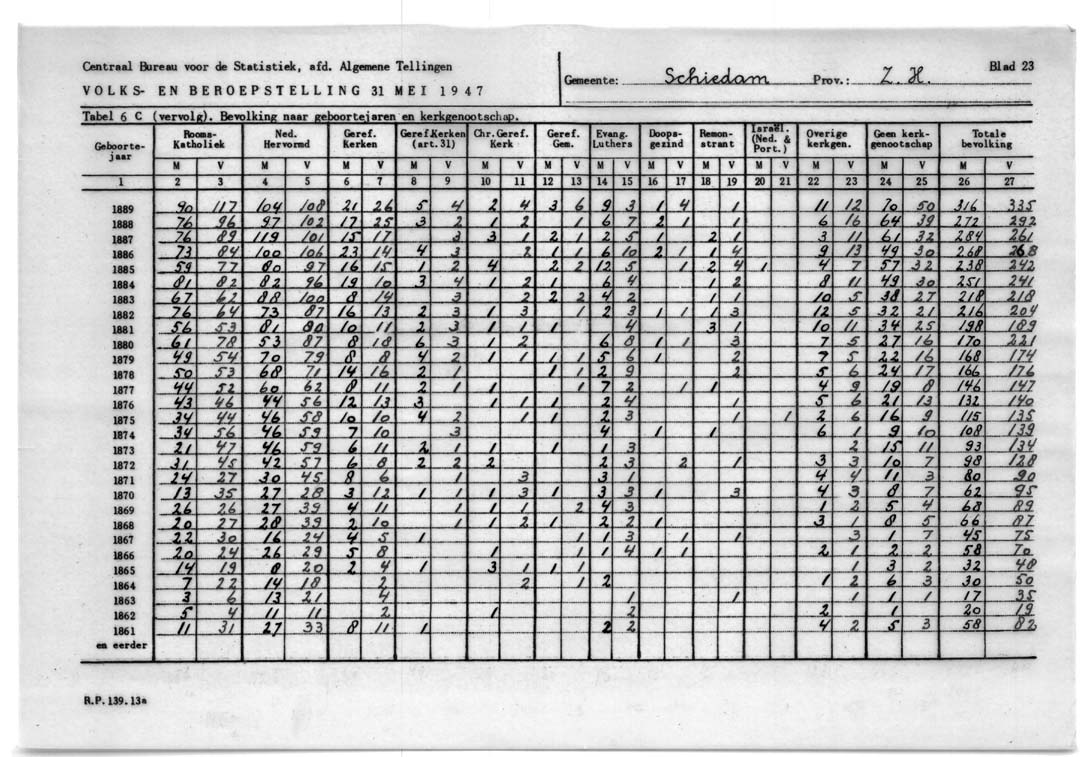 Centraal Bureau voor de Statistiek, afd. Algemene Tellingen
VOLKS- EN BEROEPSTELLING 31 MEI 1947
Gemeente: Schiedam Prov.: Z. H. Blad 23
Tabel 6 C (vervolg). Bevolking naar geboortejaren en kerkgenootschap.
Geboortejaar Rooms-Katholiek Ned. Hervormd Geref. Kerken Geref.Kerken (art.31) Chr.Geref. Kerk Geref. Gem. Evang. Luthers Doopsgezind Remonstrant Israël. (Ned. & Port.) Overige kerkgen. Geen kerkgenootschap Totale bevolking
M V M V M V M V M V M V M V M V M V M V M V M V M V
1 2 3 4 5 6 7 8 9 10 11 12 13 14 15 16 17 18 19 20 21 22 23 24 25 26 27
1889 90 117 104 108 21 26 5 4 2 4 3 6 9 3 1 4 1 11 12 70 50 316 335
1888 76 96 97 102 17 25 3 2 1 2 1 6 7 2 1 1 6 16 64 39 272 292
1887 76 89 119 101 15 17 3 3 1 2 1 2 5 1 2 1 3 11 61 32 284 261
1886 73 84 100 106 23 14 4 3 2 1 1 6 10 2 1 1 4 9 13 49 30 268 268
1885 59 77 80 97 16 15 1 2 4 2 2 12 5 1 2 4 1 4 7 57 32 238 242
1884 81 82 82 96 19 10 3 4 1 2 1 6 4 1 2 8 11 49 30 251 241
1883 67 62 88 100 8 14 3 2 2 2 4 2 1 1 10 5 38 27 218 218
1882 76 64 73 87 16 13 2 3 1 3 1 2 3 1 1 1 3 12 5 32 21 216 204
1881 56 53 81 80 10 11 2 3 1 1 1 4 3 1 10 11 34 25 198 189
1880 61 78 53 87 8 18 6 3 1 2 6 8 1 1 3 7 5 27 16 170 221
1879 49 54 70 79 8 8 4 2 1 1 1 1 5 6 1 2 7 5 22 16 168 174
1878 50 53 68 71 14 16 2 1 1 1 2 9 2 5 6 24 17 166 176
1877 44 52 60 62 8 11 2 1 1 1 7 2 1 1 4 9 19 8 146 147
1876 43 46 44 56 12 13 3 1 1 1 2 4 1 5 6 21 13 132 140
1875 34 44 46 58 10 10 4 2 1 1 2 3 1 1 2 6 16 9 115 135
1874 34 56 46 59 7 10 3 4 1 1 6 1 9 10 108 139
1873 21 47 46 59 6 11 2 1 1 1 1 3 2 15 11 93 134
1872 31 45 42 57 6 8 2 2 2 2 3 2 1 3 3 10 7 98 128
1871 24 27 30 45 8 6 1 3 3 1 4 4 11 3 80 90
1870 13 35 27 28 3 12 1 1 1 3 1 3 3 1 3 4 3 8 7 62 95
1869 26 26 27 39 4 11 1 1 1 2 4 3 1 2 5 4 68 89
1868 20 27 28 39 2 10 1 1 2 1 2 2 1 3 1 8 5 66 87
1867 22 30 16 24 4 5 1 1 1 3 1 1 3 1 7 45 75
1866 20 24 26 29 5 8 1 1 1 4 1 1 2 1 2 2 58 70
1865 14 19 8 20 2 4 1 3 1 1 1 1 3 2 32 48
1864 7 22 14 18 2 2 1 2 1 2 6 3 30 50
1863 3 6 13 21 4 1 1 1 1 1 17 35
1862 5 4 11 11 2 1 2 2 1 20 19
1861 11 31 27 33 8 11 1 2 2 4 2 5 3 58 82
en eerder
R.P. 139.13a